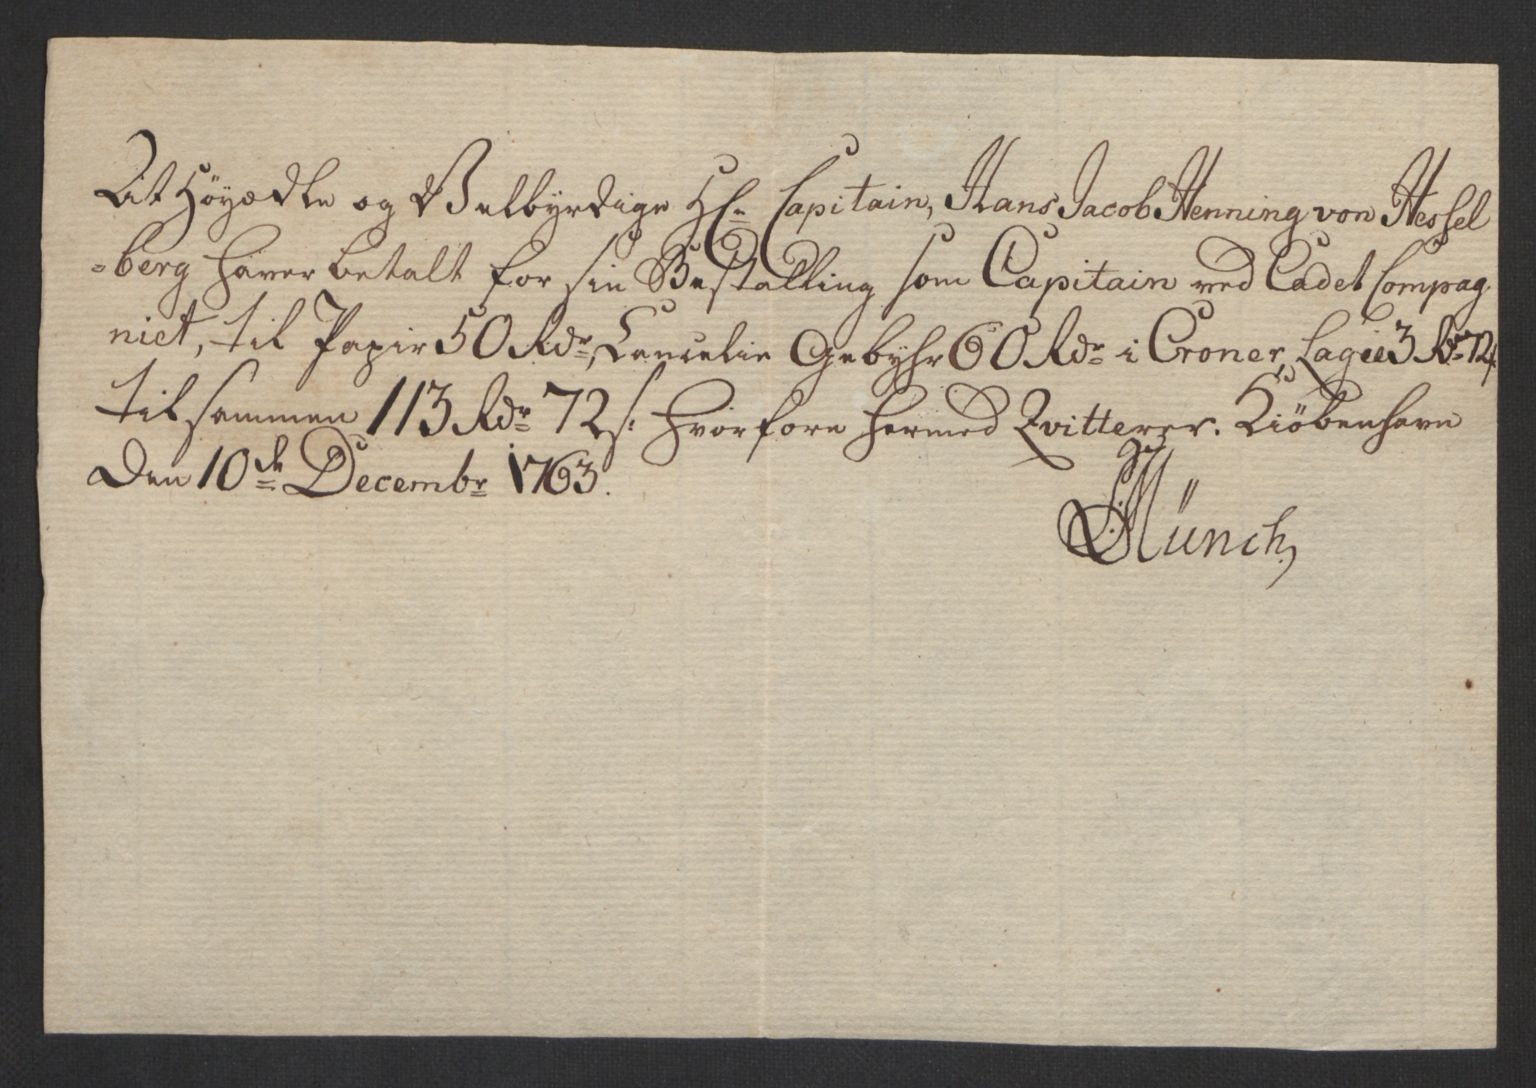 At Höyædle og Velbyrdige Hr Capitain, Hans Jacob Henning von Hessel
=berg haver betalt for sin Bestalling som Capitain ved Cadet Compag
niet, til Papir 50 Rdr, Cancelie Gebyhr 60 Rdr i Croner, Lagie 3 Rdr 72 s
tilsammen 113 Rdr 72 s: hvorfore hermed Qvitterer. Kiöbenhavn
Den 10de Decembr 1763.
Münch